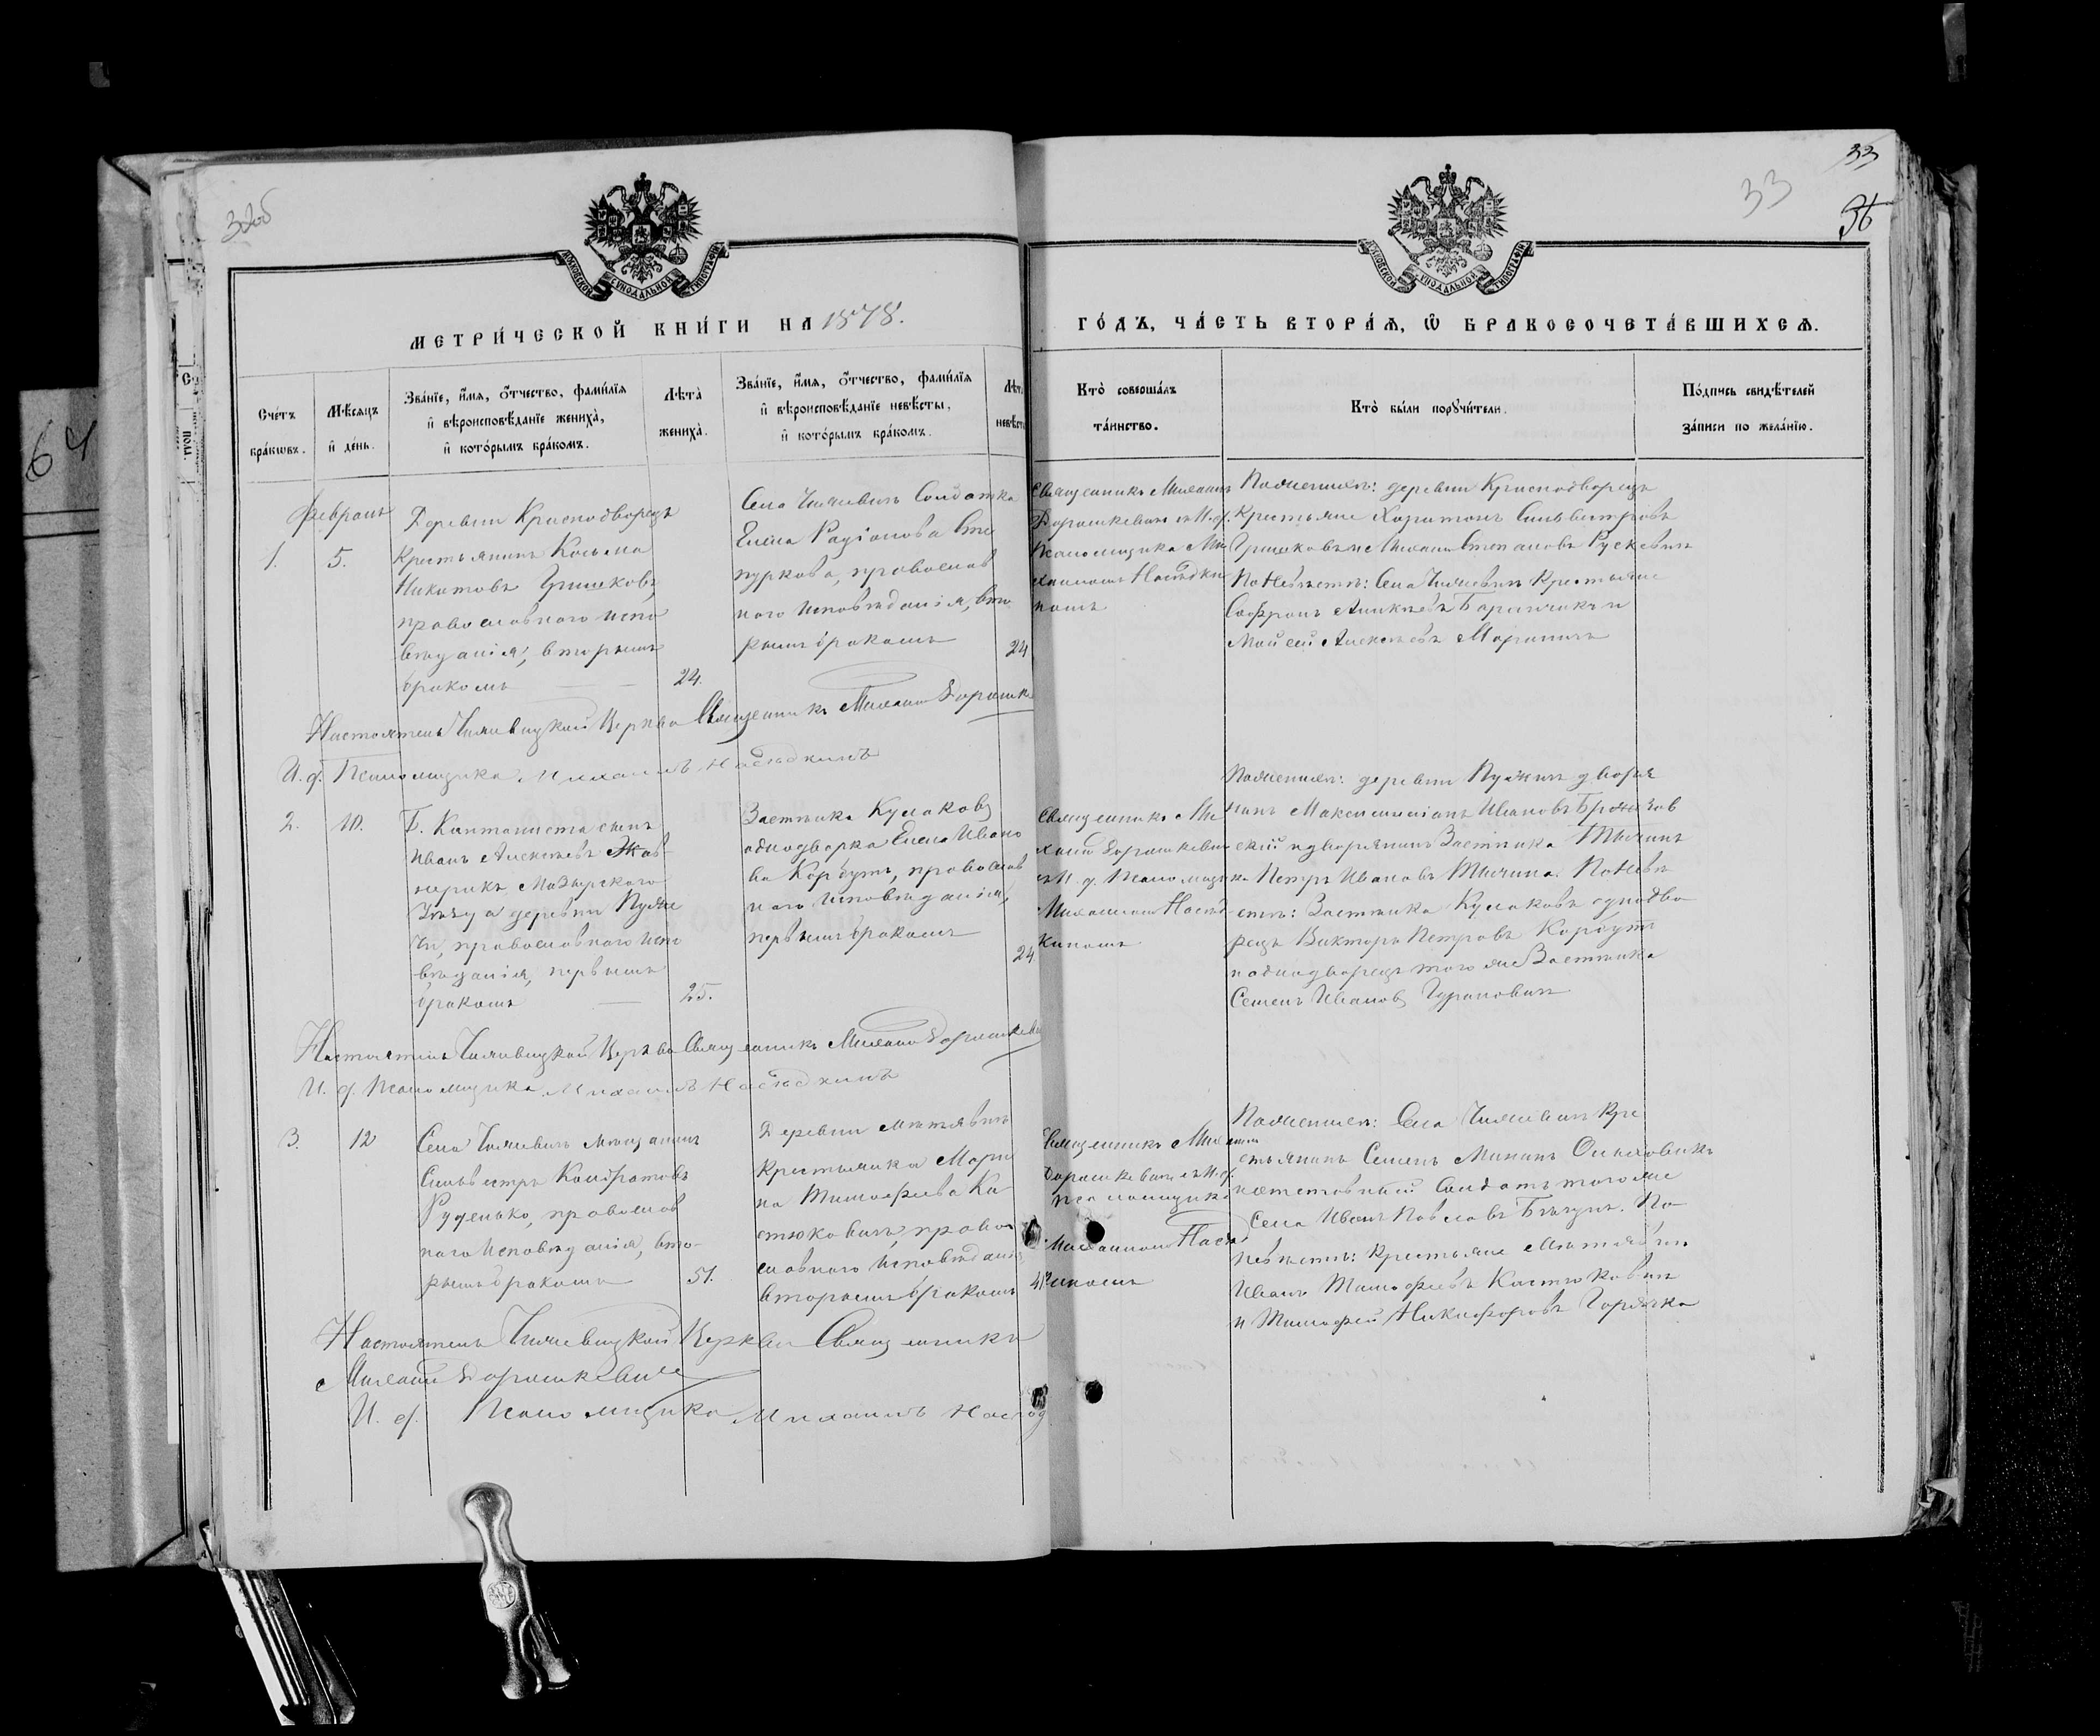 64
32об
33
33
36
МОСКОВСКОЙ СУНОДАЛЬНОЙ ТИПОГРАФІИ
МОСКОВСКОЙ СУНОДАЛЬНОЙ ТИПОГРАФІИ
МЕТРИ́ЧЕСКОЙ КНИ́ГИ НА 1878.
ГО́ДЪ, ЧА́СТЬ ВТОРА́Я, Ѽ БРАКОСОЧЕТА́ВШИХСЯ.
Сче́тъ бра́кѡвъ.
Мѣ́сяцъ и́ де́нь.
Зва́нїе, и́мя, ѻ́тчество, фами́лїя
и́ вѣроисповѣ́данїе жениха̀,
и́ кото́рымъ бра́комъ.
Лѣта̀ жениха̀.
Зва́нїе, и́мя, ѻ́тчество, фами́лїя
и́ вѣроисповѣ́данїе невѣ́сты,
и́ кото́рымъ бра́комъ.
Лѣта невѣст
Кто̀ соверша́лъ
та́инство.
Кто̀ бы́ли порꙋчи́тели.
По́дпись свидѣ́телей
за́писи по жела́нїю.
Февраль
1.
5.
Деревни Краснодворецъ
Крестьянинъ Косьма
Никитовъ Гришковъ,
православнаго испо
вѣданія, вторымъ
бракомъ
24.
Села Чижевичъ Солдатка
Елена Радіонова
пуркова, православ
наго исповѣданія, вто
рымъ бракомъ
24
Священникъ Михаилъ
Дорошкевичъ съ И. ф.
Псаломщика Ми
хаиломъ Насѣдки
номъ
По женихѣ: деревни Краснодворецъ
Крестьяне Харитонъ Сильвестровъ
Гришковъ и Михаилъ Степановъ Рускевичъ
По невѣстѣ: Села Чижевичъ Крестьяне
Софронъ Баранчикъ и
Моисей Алексѣевъ
Настоятель Чижевицкой Церкви Священникъ Михаилъ Дорошке
И. ф. Псаломщика Михаилъ Насѣдкинъ
2.
10.
Б. Кантониста сынъ
Иванъ Алексѣевъ
Мозырскаго
Уѣзда деревни
православнаго испо
вѣданія, первымъ
бракомъ
25.
Застѣнка Кулаковъ
однодворка Елена Ивано
ва Корбутъ, православ
наго исповѣданія,
первымъ бракомъ
24
Священникъ Ми
хаилъ Дорошкевичъ
съ И. ф. Псаломщика
Михаиломъ Насѣд
кинымъ
По женихѣ: деревни дворя
нинъ Максимиліанъ Ивановъ
скій и дворянинъ Застѣнка
Петръ Ивановъ По невѣ
стѣ: Застѣнка Кулаковъ однодво
рецъ Викторъ Петровъ Корбутъ
и однодворецъ того же Застѣнка
Семенъ Ивановъ Гурановичъ
Настоятель Чижевицкой Церкви Священникъ Михаилъ Дорошкеви
И. ф. Псаломщика Михаилъ Насѣдкинъ
3.
12
Села Чижевичъ мѣщанинъ
Сильвестръ Кондратовъ
Руденько, православ
наго исповѣданія, вто-
рымъ бракомъ
51.
Деревни Метявичъ
крестьянка Мари
на Тимофеева Ко
стюковичъ, право
славнаго исповѣдані
вторымъ бракомъ
Священникъ Михаилъ
Дорошкевичъ съ И. ф.
псаломщика
Михаиломъ Насѣд
кинымъ
По женихѣ: Села Чижевичъ Кре
стьянинъ Семенъ Мининъ
и отставный Солдатъ того же
Села Иванъ Павловъ По
невѣстѣ: крестьяне
Иванъ Тимофѣевъ Костюковичъ
и Тимофей Никифоровъ
Настоятель Чижевицкой Церкви Священникъ
Михаилъ Дорошкевичъ
И. ф. Псаломщика Михаилъ Насѣд